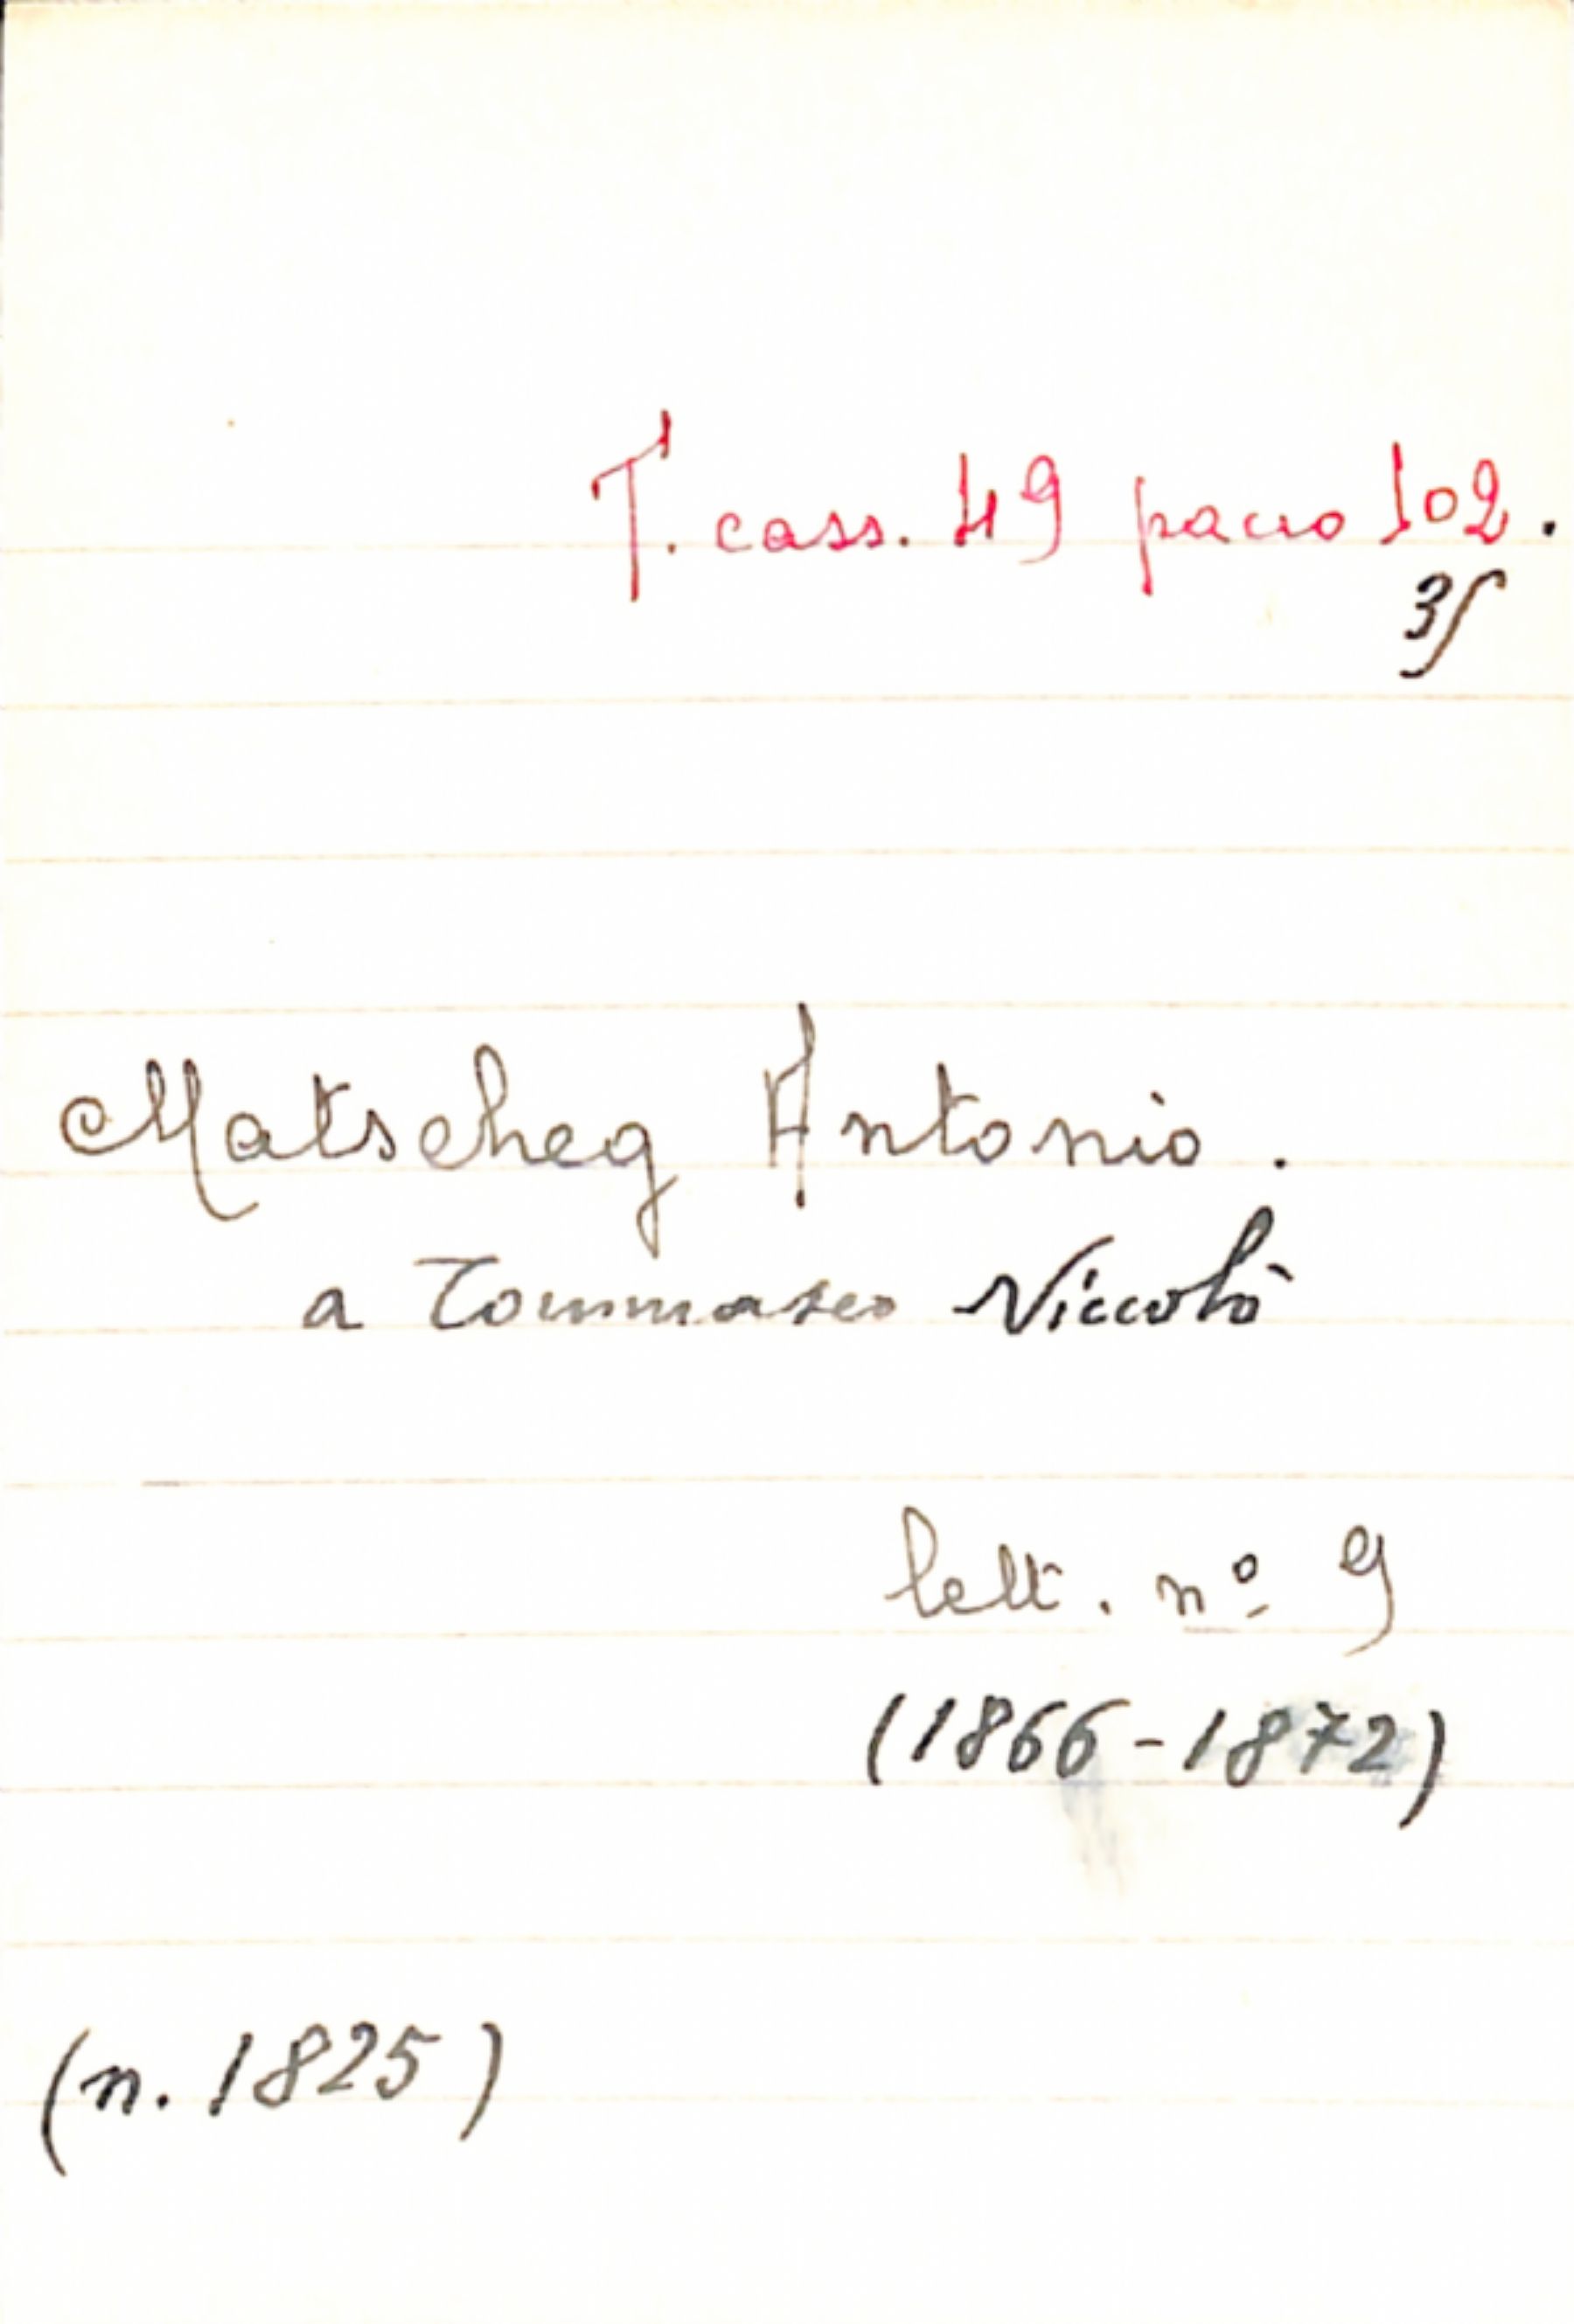 T. cass. 49 pacco 102.
35
Matscheg Antonio.
a Tommaseo Niccolò
lett. nº 9
(1866-1872)
(n. 1825)